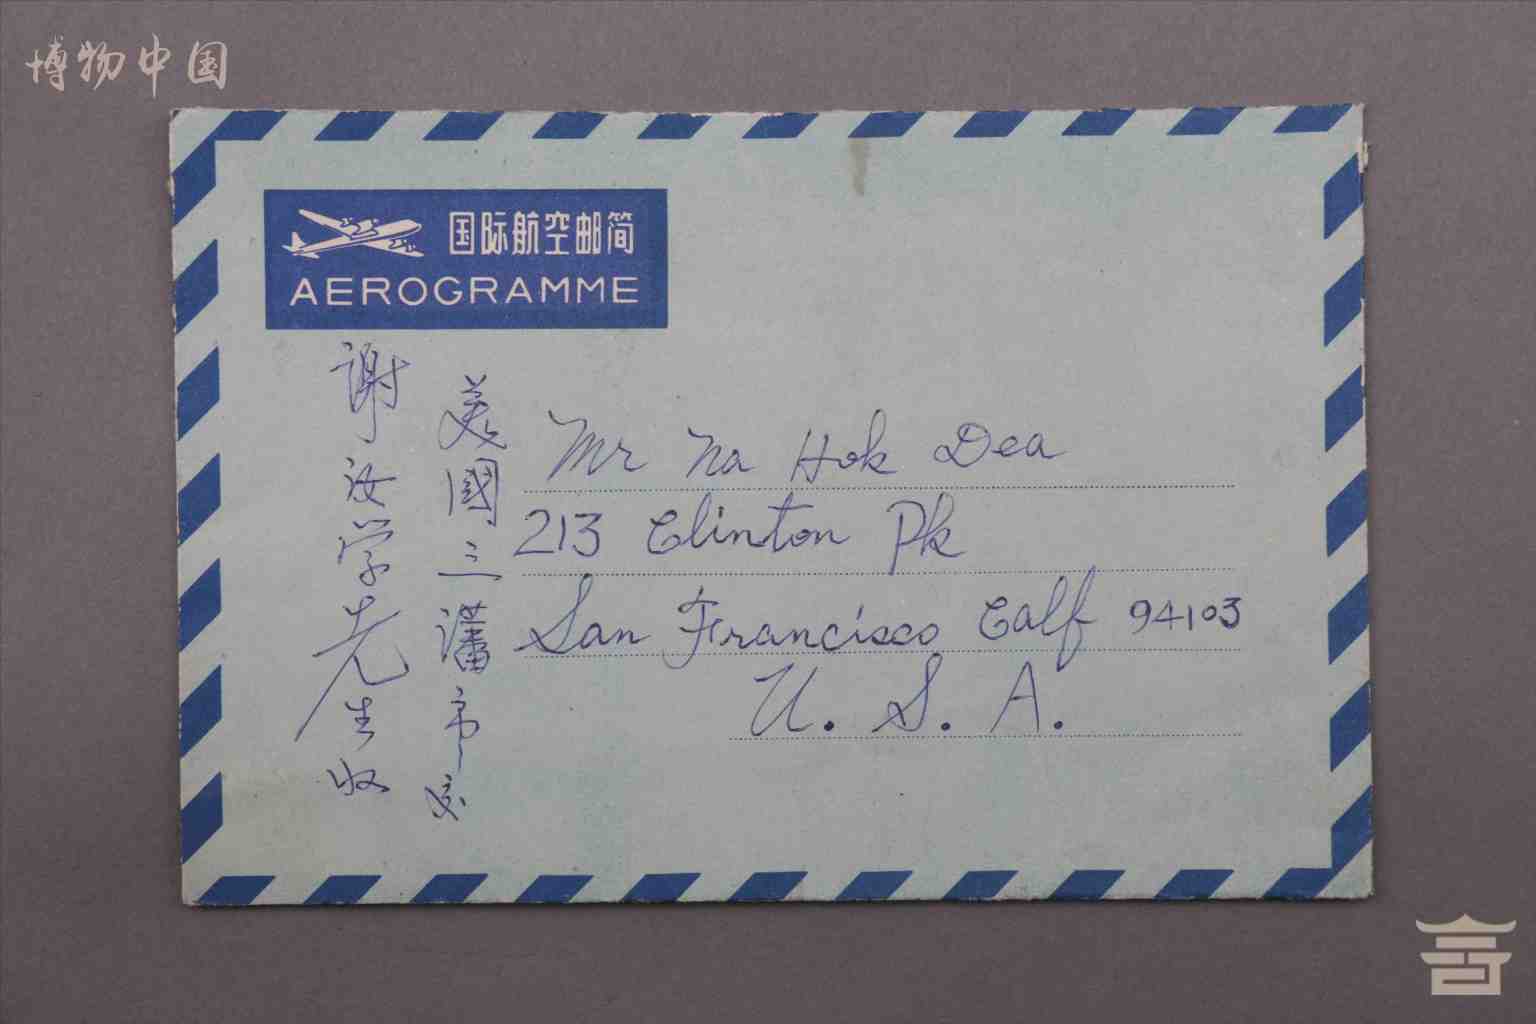 博物中国
国际航空邮简
AEROGRAMME
美國三藩市交
謝汝学先生收
Mr Na Hok Dea
213 Clinton Pk
San Francisco Calf 94103
U. S. A.